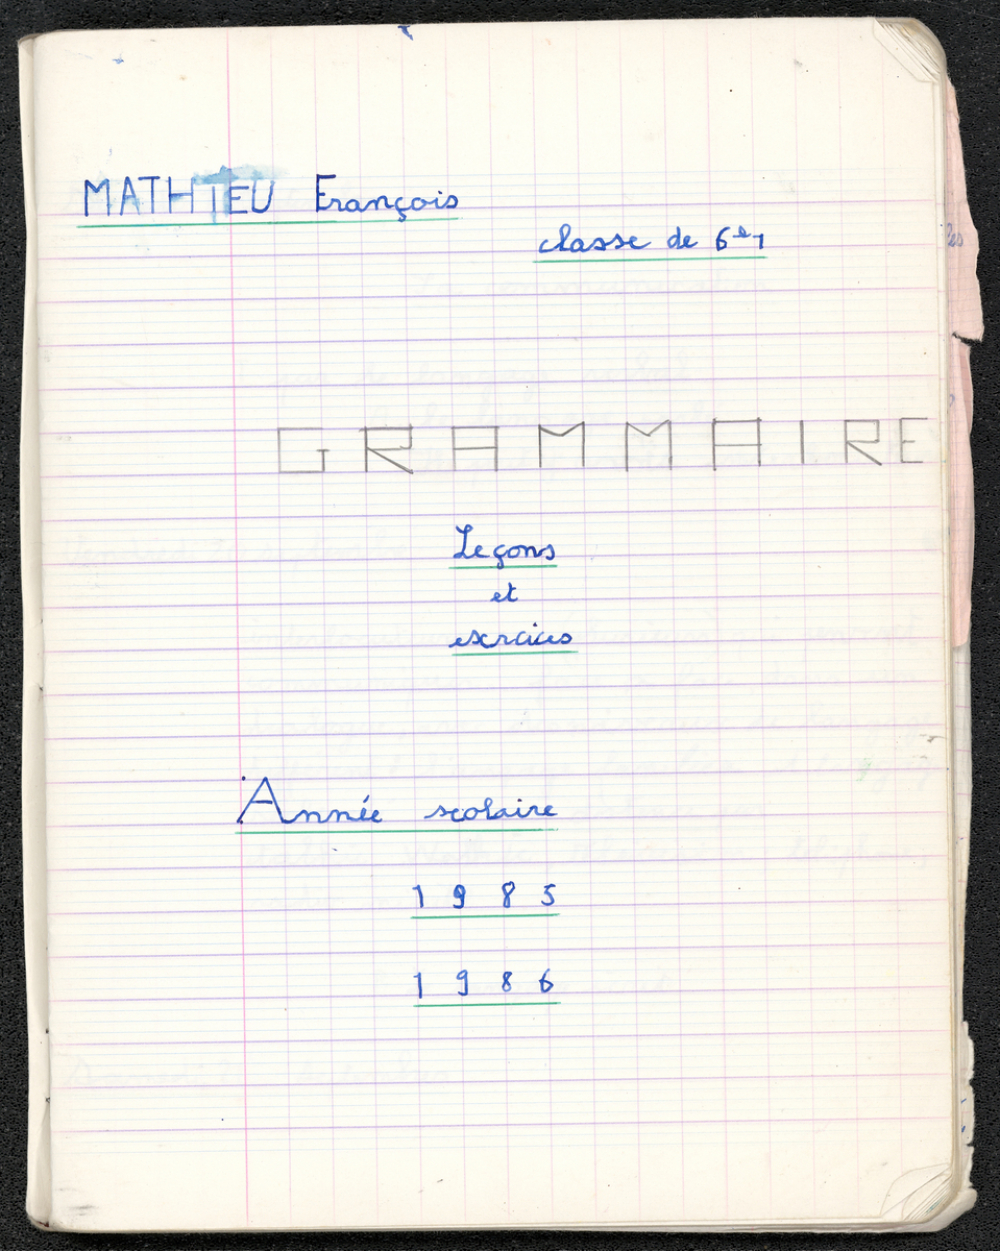 MATHIEU François
classe de 6e1
GRAMMAIRE
Leçons
et
exrcices
Année scolaire
1985
1986